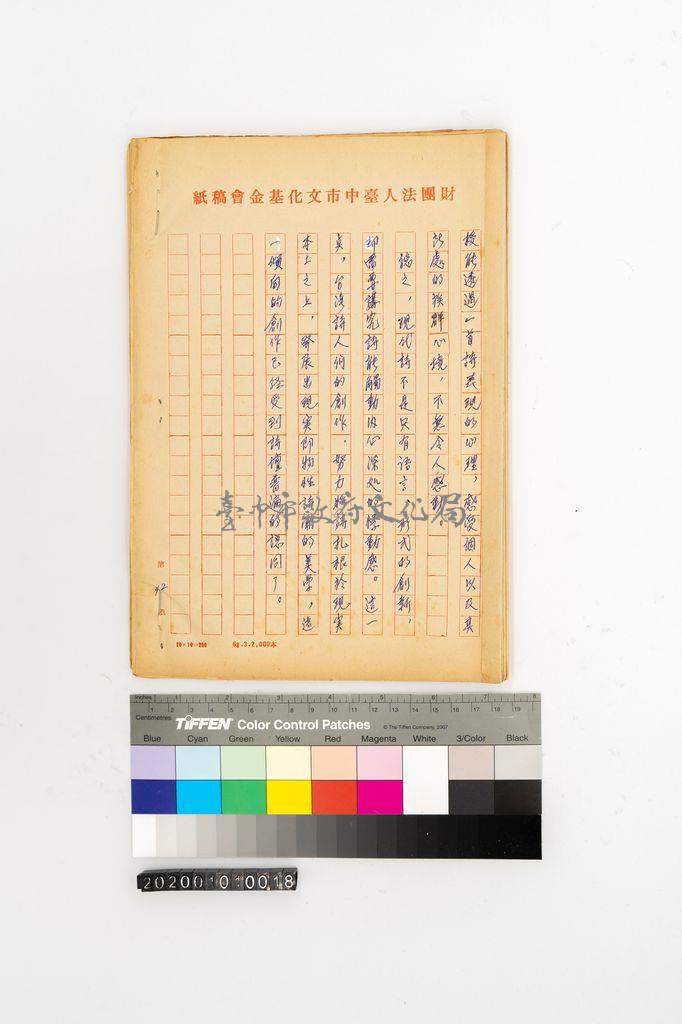 財團法人臺中市文化基金會稿紙
梭能透過一首詩表現的心理，感受個人以及其
所處的族群心境，不無令人感動。
總之，現代詩不是只有語言、形式的創新，
却需要講究詩能觸動內心深処的悸動感。這一
点，台湾詩人们的創作，努力將詩扎根於現実
本土之上，發展出現実即物性詩潮的美學，這
一傾向的創作已經受到詩壇普遍的認同了。
臺中市政府文化局
第
42
頁
20×10=200
6g.3.2,000本
inches 1 2 3 4 5 6 7 8
Centimetres 1 2 3 4 5 6 7 8 9 10 11 12 13 14 15 16 17 18 19
TIFFEN Color Control Patches
© The Tiffen Company, 2007
Blue Cyan Green Yellow Red Magenta White 3/Color Black
20200101001 8